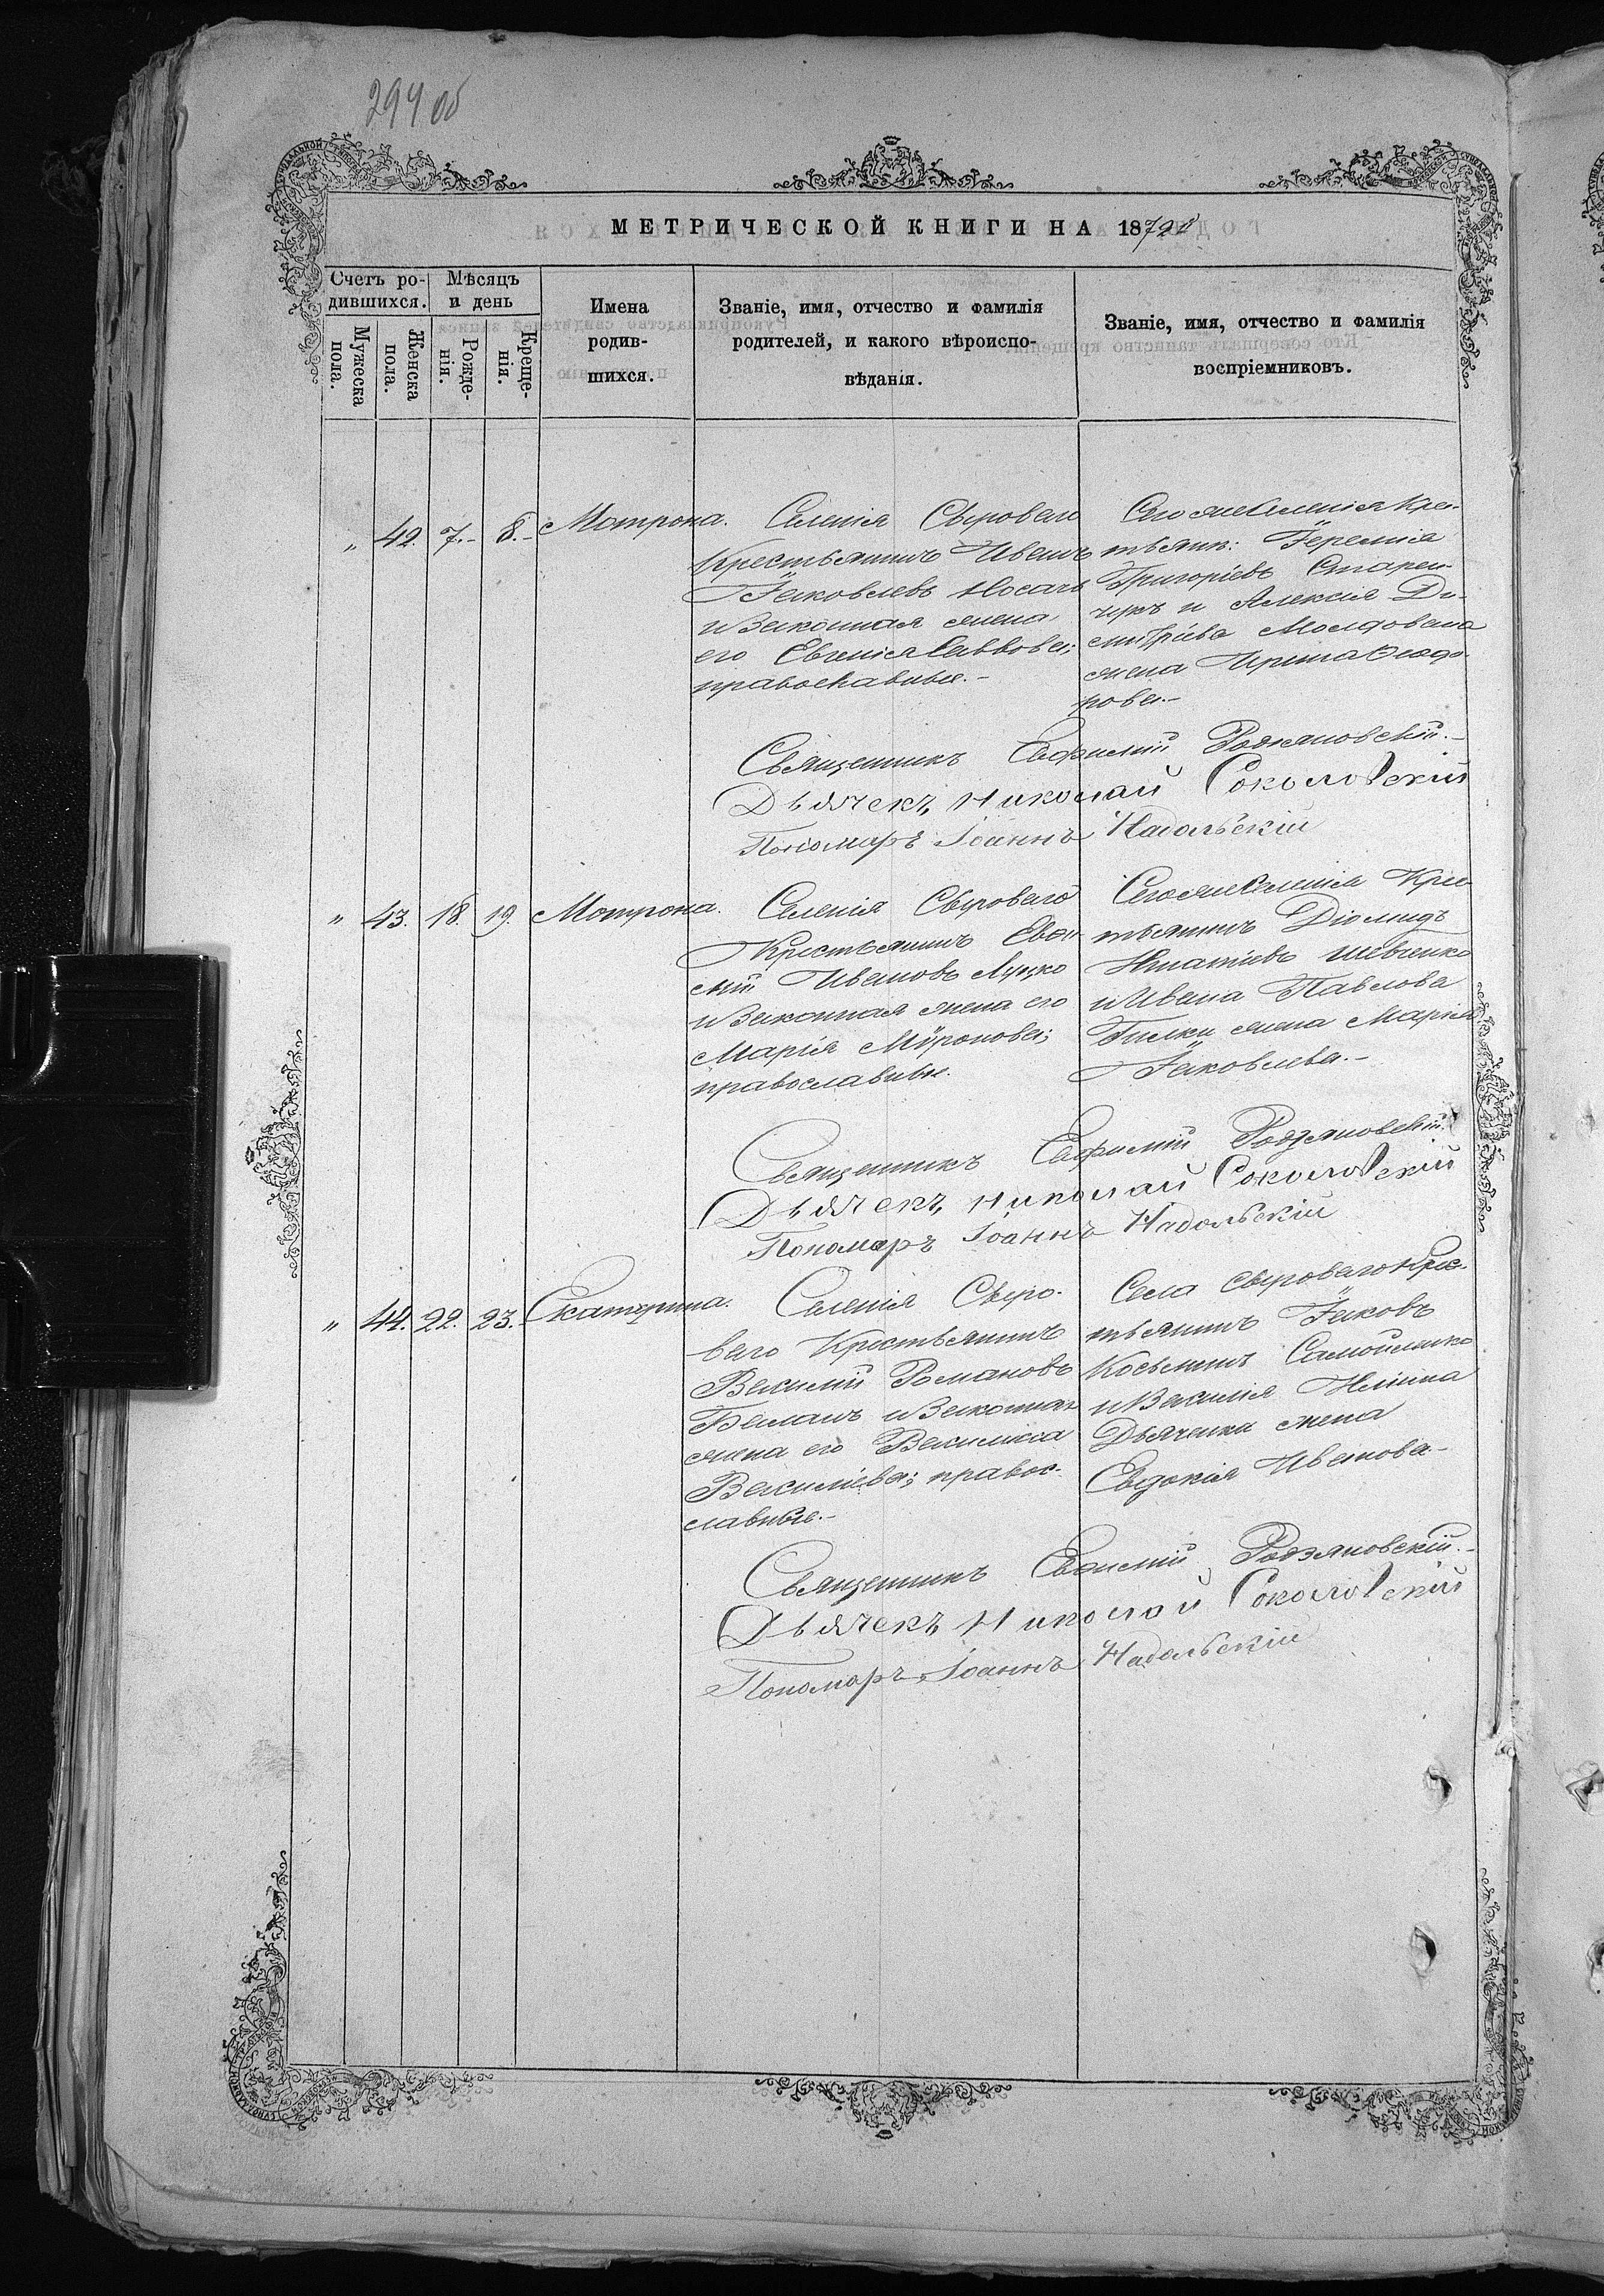 294 об
МЕТРИЧЕСКОЙ КНИГИ НА 1872й
Счетъ ро-
дившихся.
Мѣсяцъ
и день
Мужеска
пола.
Женска
пола.
Рожде-
нія.
Креще-
нія.
Имена
родив-
шихся.
Званіе, имя, отчество и фамилія
родителей, и какого вѣроиспо-
вѣданія.
Званіе, имя, отчество и фамилія
воспріемниковъ.
„ 42. 7.- 8.- Мотрона.
Селенія Сыроваго
Крестьянинъ Иванъ
Іаковлевъ Носачъ
и Законная жена
его Евгенія Саввова;
православные.-
Сего же Селенія Крес-
тьянин: Іеремія
Григоріевъ Старен-
чукъ и Алексія Ди-
митріева Молдована
жена Ирина Ѳеодо-
рова.-
Священникъ Евфимій Родзяновскій.-
Дьячекъ Николай Соколовскій
Пономаръ Іоаннъ Надольскій
„ 43. 18. 19. Мотрона.
Селенія Сыроваго
Крестьянинъ Евѳи-
мій Ивановъ Луцко
и Законная жена его
Марія Мѵронова;
православные.
Сего же Селенія Крес-
тьянинъ Діомидъ
Игнатіевъ Шевченко
и Ивана Павлова
Гилки жена Марія
Іаковлева.-
Священникъ Евфимій Родзяновскій.
Дьячекъ Николай Соколовскій
Пономаръ Іоаннъ Надольскій
„ 44. 22. 23. Екатерина.
Селенія Сыро-
ваго Крестьянинъ
Василій Романовъ
Баланъ и Законная
жена его Василисса
Василіева; правос-
лавные.-
Села Сыроваго Крес-
тьянинъ Іаковъ
Косьминъ Самойленко
и Василія
Дьяченки жена
Евдокія Иванова.-
Священникъ Евѳимій Родзяновскій.-
Дьячекъ Николай Соколовскій
Пономаръ Іоаннъ Надольскій